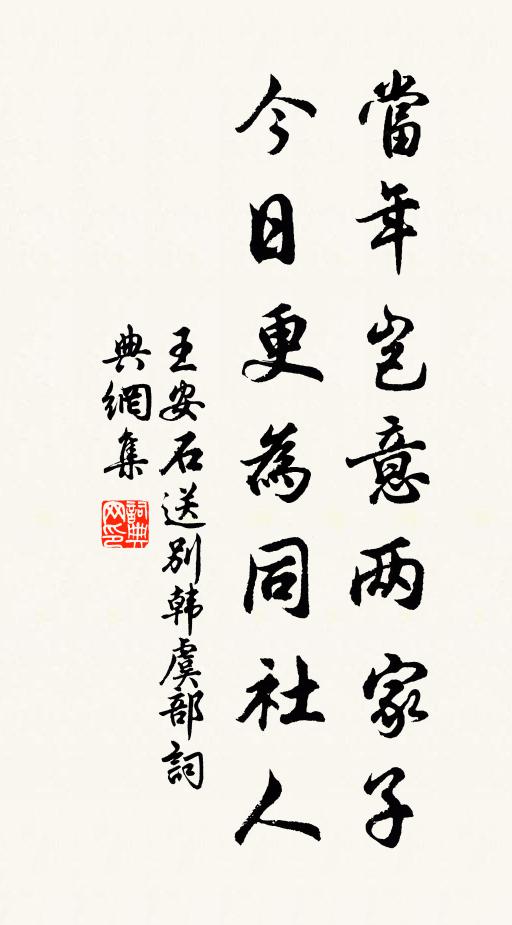 當年豈意两家子
今日更為同社人
王安石送別韓虞部詞
典網集
詞典网印